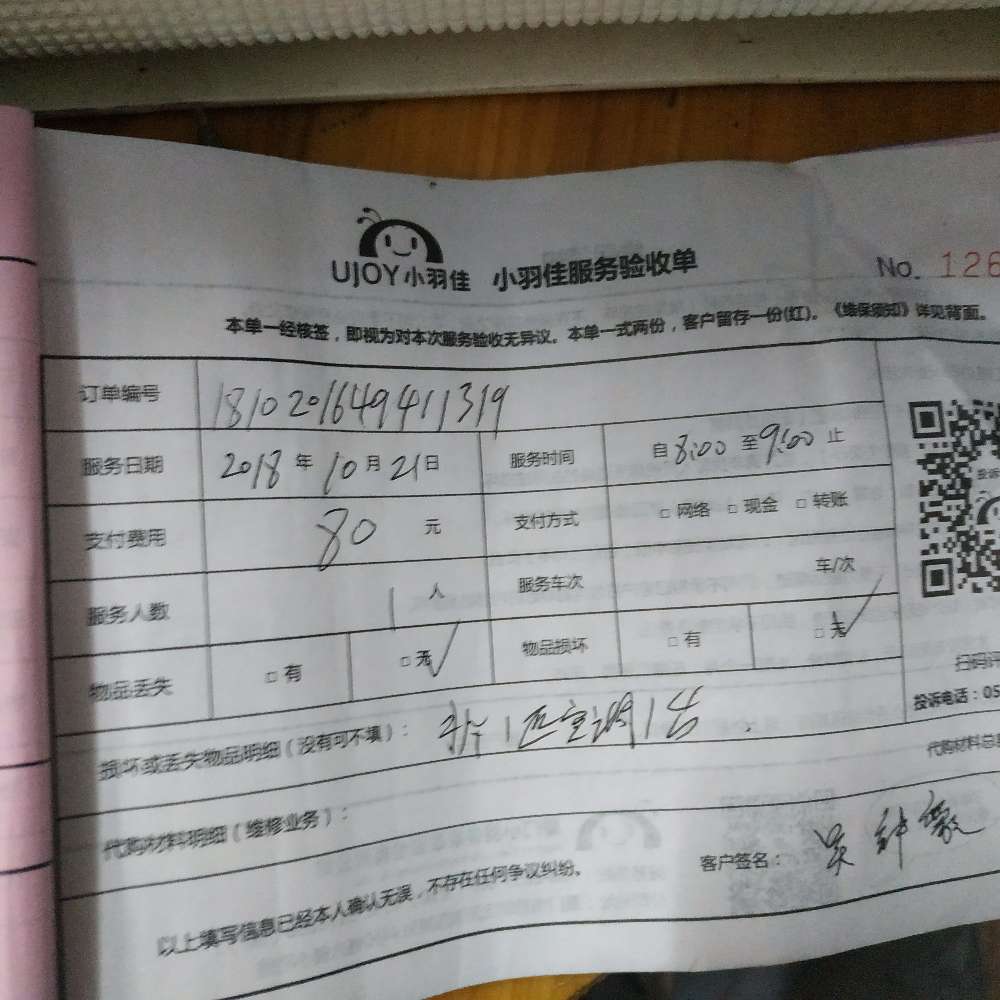 UJOY小羽佳 小羽佳服务验收单 No. 126
本单一经核签，即视为对本次服务验收无异议。本单一式两份，客户留存一份(红)。《维保须知》详见背面。
订单编号 181020164941319
服务日期 2018年10月21日 服务时间 自8:00至9:00止
支付费用 80元 支付方式 □网络 □现金 □转账
服务人数 1人 服务车次 车/次
物品丢失 □有 □无✓ 物品损坏 □有 □无✓
扫码
投诉电话：05
损坏或丢失物品明细（没有可不填）： 拆1匹空调1台.
代购材料总
代购材料明细（维修业务）：
以上填写信息已经本人确认无误，不存在任何争议纠纷。 客户签名：吴钟